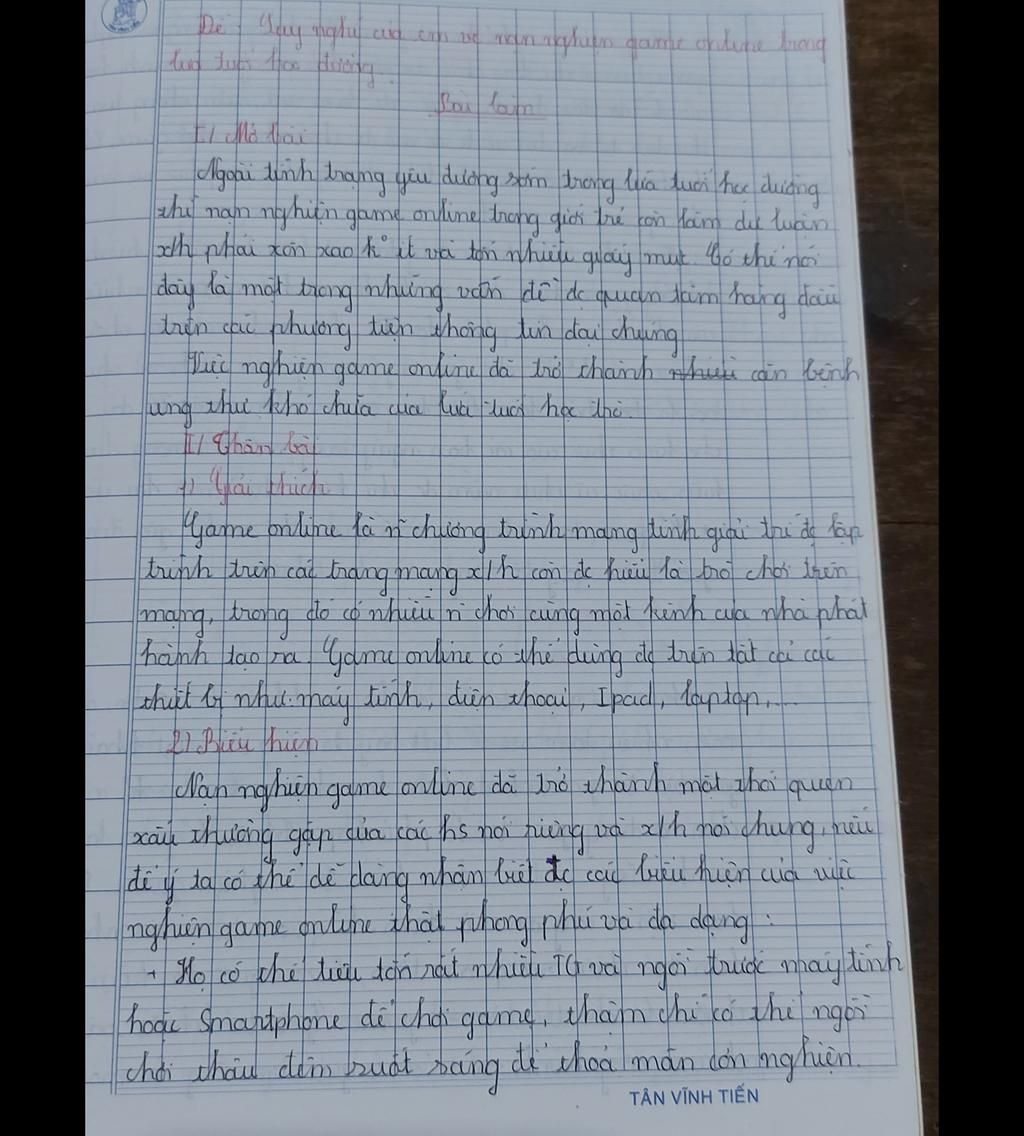 Đề: Suy nghĩ của em về nạn nghiện game online trong
lứa tuổi học đường.
Bài làm
I/ Mở bài
Ngoài tình trạng yêu đương sớm trong lứa tuổi học đường
thì nạn nghiện game online trong giới trẻ còn làm dư luận
x/h phải xôn xao k° ít và tốn nhiều giấy mực. Có thể nói
đây là một trong những vấn đề đc quan tâm hàng đầu
trên các phương tiện thông tin đại chúng
Việc nghiện game online đã trở thành căn bệnh
ung thư khó chữa của lứa tuổi học trò.
II/ Thân bài
1) Giải thích
Game online là n~ chương trình mang tính giải trí đc lập
trình trên các trang mạng x/h còn đc hiểu là trò chơi trên
mạng, trong đó có nhiều n~ chơi cùng một kênh của nhà phát
hành tạo ra. Game online có thể dùng đc trên tất cả các
thiết bị như: máy tính, điện thoại, Ipad, laptop,...
2) Biểu hiện
Nạn nghiện game online đã trở thành một thói quen
xấu thường gặp của các hs nói riêng và x/h nói chung, nếu
để ý ta có thể dễ dàng nhận biết đc các biểu hiện của việc
nghiện game online thật phong phú và đa dạng:
+ Họ có thể tiêu tốn rất nhiều TG và ngồi trước máy tính
hoặc Smartphone để chơi game, thậm chí có thể ngồi
chơi thâu đêm suốt sáng để thoả mãn cơn nghiện.
TÂN VĨNH TIẾN